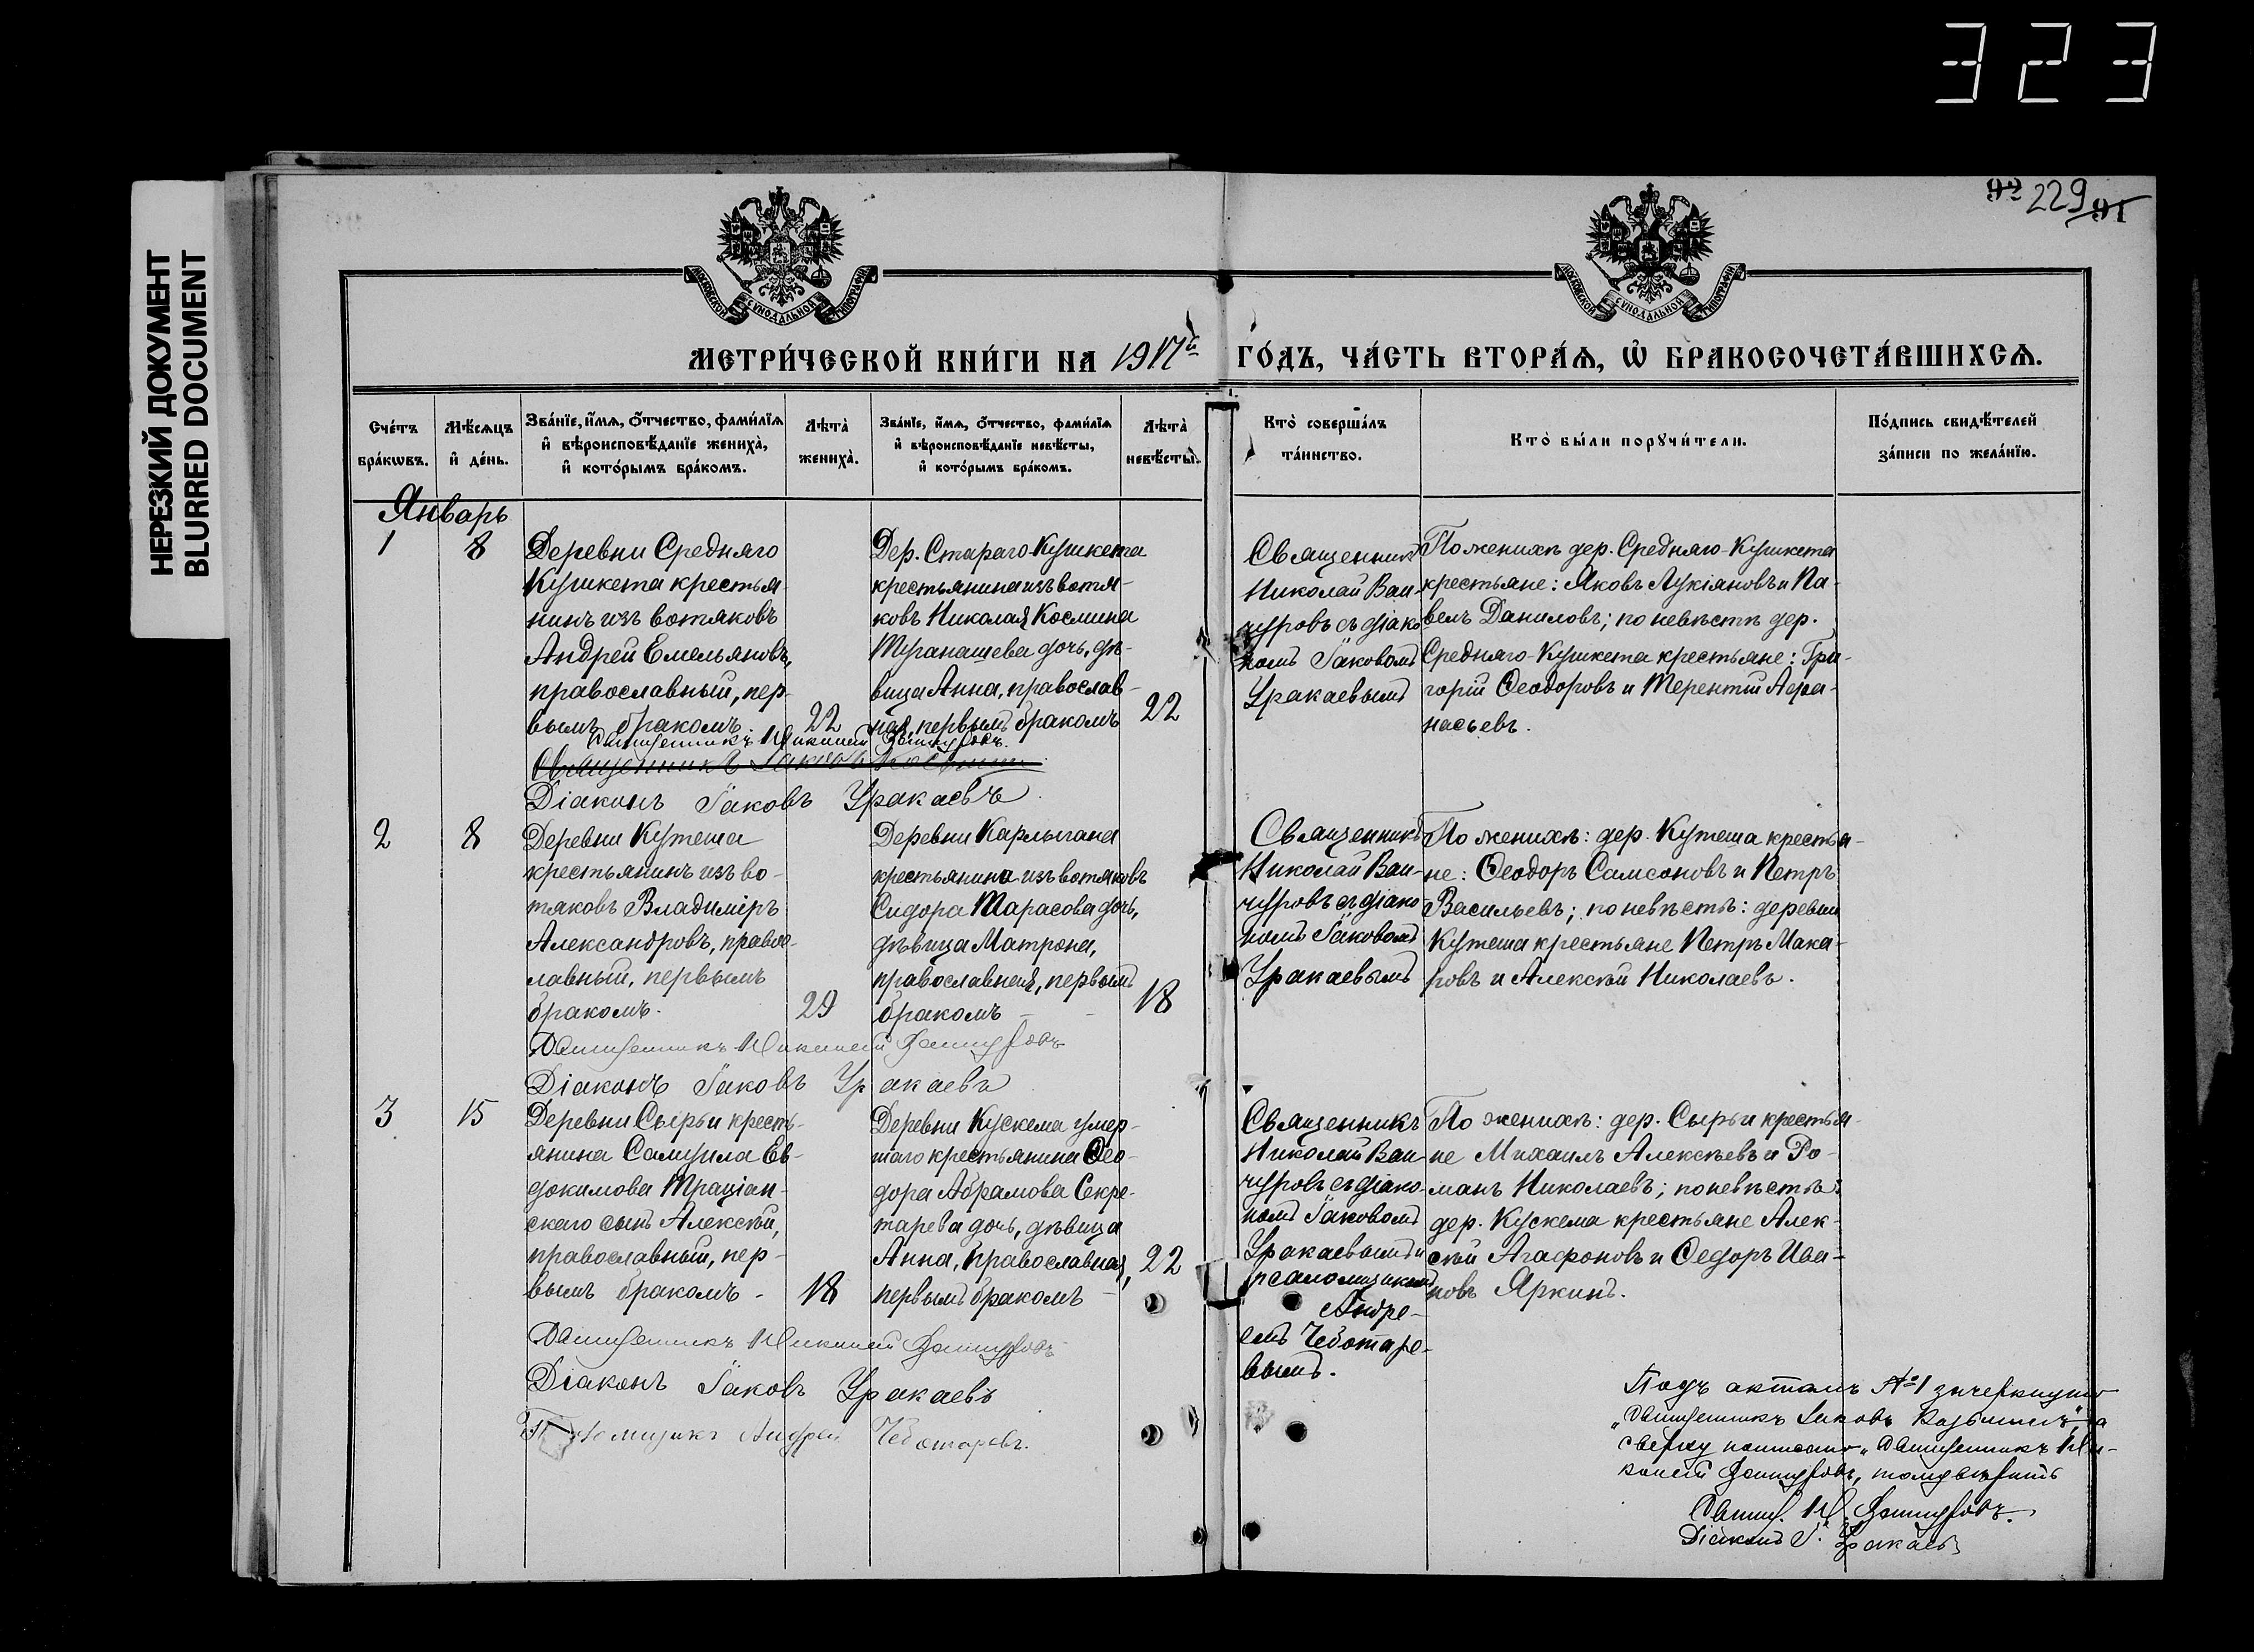 323
НЕРЕЗКИЙ ДОКУМЕНТ
BLURRED DOCUMENT
92 229 91
МОСКОВСКОЙ СѴНОДАЛЬНОЙ ТИПОГРАФІИ
МОСКОВСКОЙ СѴНОДАЛЬНОЙ ТИПОГРАФІИ
МЕТРИ́ЧЕСКОЙ КНИ́ГИ НА 1917й ГО́ДЪ, ЧА́СТЬ ВТОРА́Я, Ѡ БРАКОСОЧЕТА́ВШИХСЯ.
Сче́тъ
бра́кѡвъ.
Мѣ́сяцъ
и҆ де́нь.
Зва́нїе, и҆́мя, о҆́тчество, фами́лїя
и҆ вѣроисповѣ́данїе жениха̀,
и҆ кото́рымъ бра́комъ.
Лѣта̀
жениха̀.
Зва́нїе, и҆́мя, о҆́тчество, фами́лїя
и҆ вѣроисповѣ́данїе невѣ́сты,
и҆ кото́рымъ бра́комъ.
Лѣта̀
невѣ́сты.
Кто̀ соверша́лъ
та́инство.
Кто̀ бы́ли порꙋчи́тели.
По́дпись свидѣ́телей
за́писи по жела́нїю.
Январь
1
8
Деревни Средняго
Кушкета крестья-
нинъ изъ вотяковъ
Андрей Емельяновъ,
православный, пер-
вымъ бракомъ.
22
Дер. Стараго-Кушкета
крестьянина изъ вотя-
ковъ Николая Космина
Муганашева дочь, дѣ-
вица Анна, православ-
ная, первымъ бракомъ
22
Священникъ
Николай Ван-
чуровъ съ діако
номъ Іаковомъ
Уракаевымъ
По женихѣ дер. Средняго-Кушкета
крестьяне: Яковъ Лукіяновъ и Па-
велъ Даниловъ; по невѣстѣ дер.
Средняго-Кушкета крестьяне: Гри-
горій Ѳеодоровъ и Терентій Аѳа-
насьевъ.
Священникъ Николай
Священникъ Іаковъ
Діаконъ Іаковъ Уракаевъ
2
8
Деревни Кутеша
крестьянинъ изъ во-
тяковъ Владиміръ
Александровъ, правос-
лавный, первымъ
бракомъ.
29
Деревни Карлыгана
крестьянина изъ вотяковъ
Сидора Тарасова дочь,
дѣвица Матрона,
православная, первымъ
бракомъ
18
Священникъ
Николай Ван-
чуровъ съ діако
номъ Іаковомъ
Уракаевымъ
По женихѣ: дер. Кутеша крестья-
не: Ѳеодоръ Самсоновъ и Петръ
Васильевъ; по невѣстѣ: деревни
Кутеша крестьяне Петръ Мака-
ровъ и Алексѣй Николаевъ.
Священникъ Николай
Діаконъ Іаковъ Уракаевъ
3
15
Деревни Сырьи кресть-
янина Самуила Ев-
докимова Траціан-
скаго сынъ Алексѣй,
православный, пер-
вымъ бракомъ -
18
Деревни Кускема умер-
шаго крестьянина Ѳео-
дора Абрамова Секре-
тарева дочь, дѣвица
Анна, православная,
первымъ бракомъ
22
Священникъ
Николай Ван-
чуровъ съ діако-
номъ Іаковомъ
Уракаевымъ и
псаломщикомъ
Андре-
емъ Чеботаре-
вымъ.
По женихѣ: дер. Сырьи крестья-
не Михаилъ Алексѣевъ и Ро-
манъ Николаевъ; по невѣстѣ:
дер. Кускема крестьяне Алек-
сѣй Агафоновъ и Ѳедоръ Ива-
новъ Яркинъ.
Священникъ Николай
Діаконъ Іаковъ Уракаевъ
Псаломщикъ Андрей Чеботаревъ.
Подъ актомъ №1 зачеркнуто
„Священникъ Іаковъ
сверху написано „Священникъ Ни-
колай
Свящ. Н.
Діаконъ І. Уракаевъ